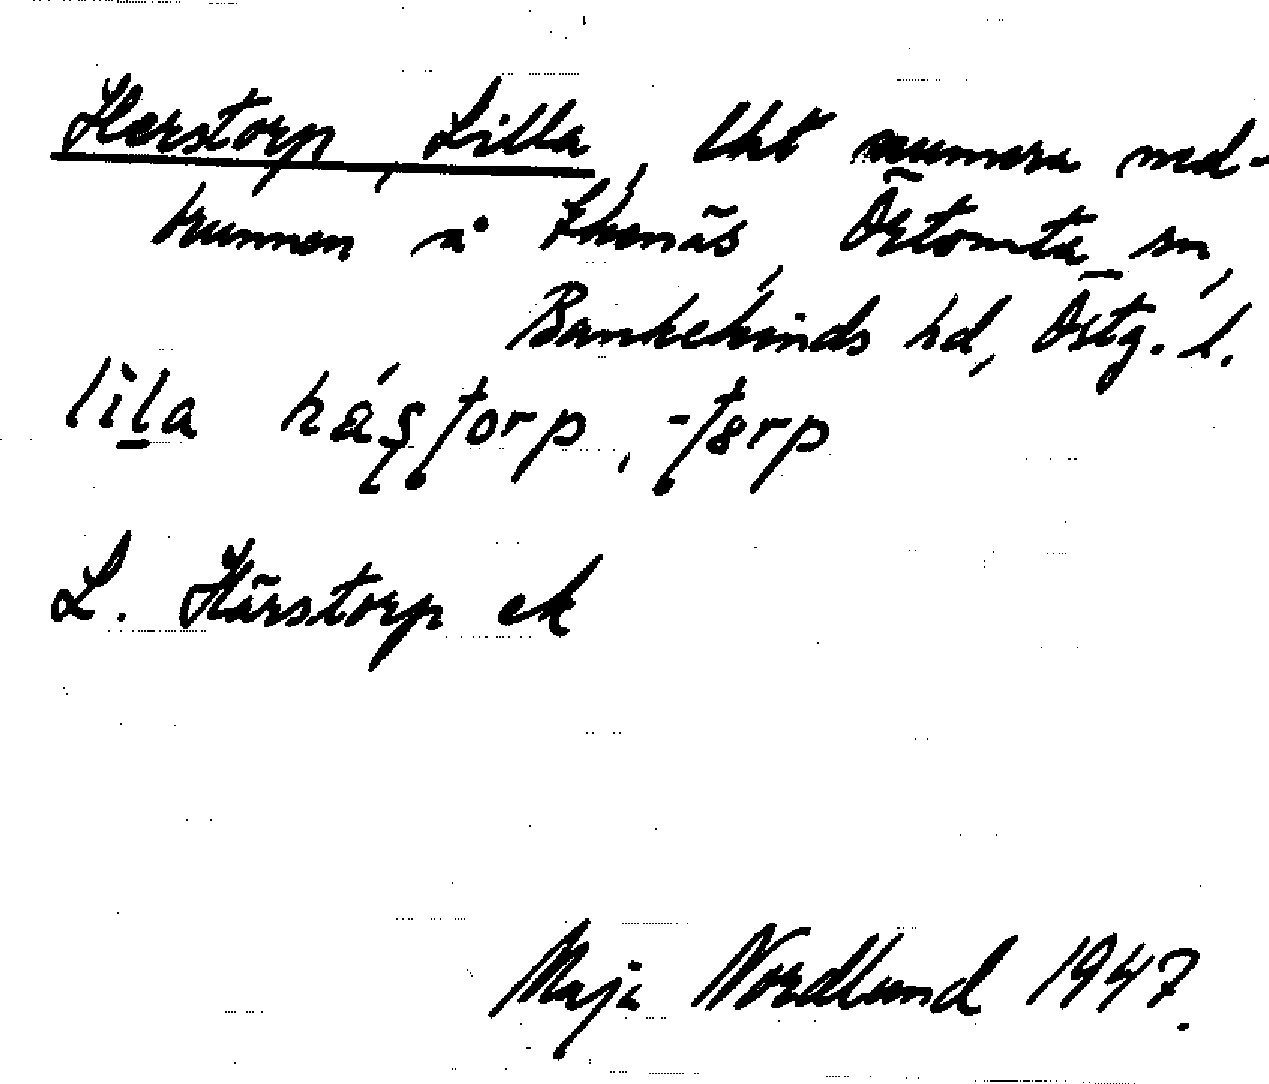 Harstorp, Lilla, lht numera ned-
brunnen å Ekenäs, Örtomta sn,
Bankekinds hd, Östg. l.
lila há̤storp, -tɜrp
L. Härstorp ek
Maja Nordlund 1947.